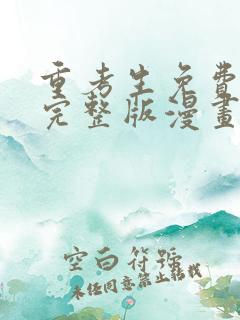 重考生免費
完整版漫畫
空白符號
未经同意禁止转载